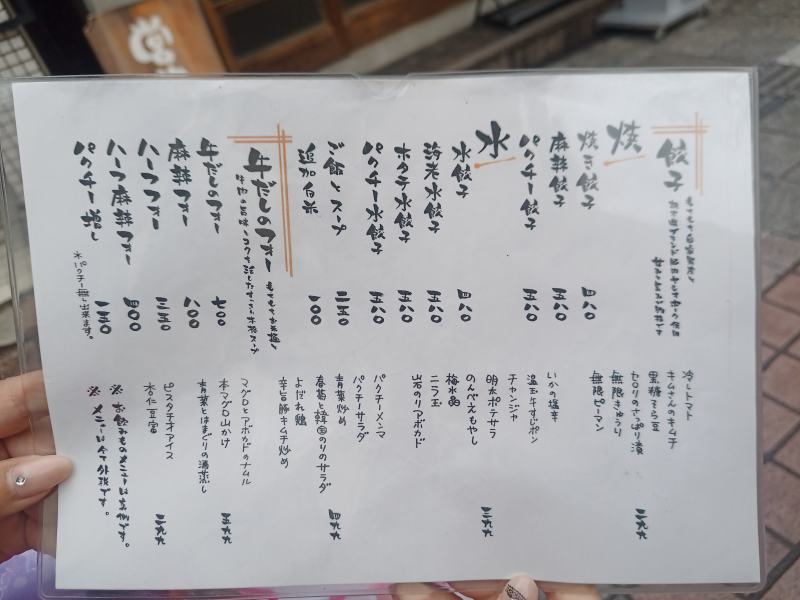 餃子
焼
焼き餃子 四八〇
麻辣餃子 五八〇
パクチー餃子 五八〇
水
水餃子 四八〇
海老水餃子 五八〇
ホタテ水餃子 五八〇
パクチー水餃子 五八〇
ご飯とスープ 二五〇
追加白米 一〇〇
牛だしのフォー
牛だしのフォー 七〇〇
麻辣フォー 八〇〇
ハーフフォー 三五〇
ハーフ麻辣フォー 四〇〇
パクチー増し 一五〇
※パクチー無し出来ます。
冷しトマト
キムさんのキムチ
黒糖そら豆
セロリのさっぱり漬
無限きゅうり
無限ピーマン
二九九
いかの塩辛
温玉牛すじポン
チャンジャ
明太ポテサラ
のんべえもやし
梅水晶
ニラ玉
山石のりアボカド
三九九
パクチーメンマ
パクチーサラダ
青菜炒め
春菊と韓国のりのサラダ
よだれ鶏
辛旨豚キムチ炒め
四九九
マグロとアボカドのナムル
本マグロ山かけ
青菜とはまぐりの酒蒸し
五九九
ピスタチオアイス
杏仁豆腐
二九九
※お飲みものメニューは裏側です。
※メニューは全て外税です。